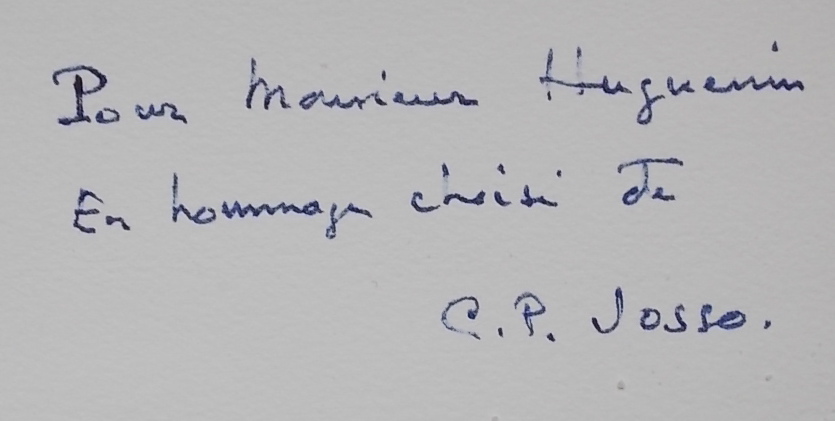 Pour Monsieur Huguenin
En hommage choisi de
C.P. Josso.